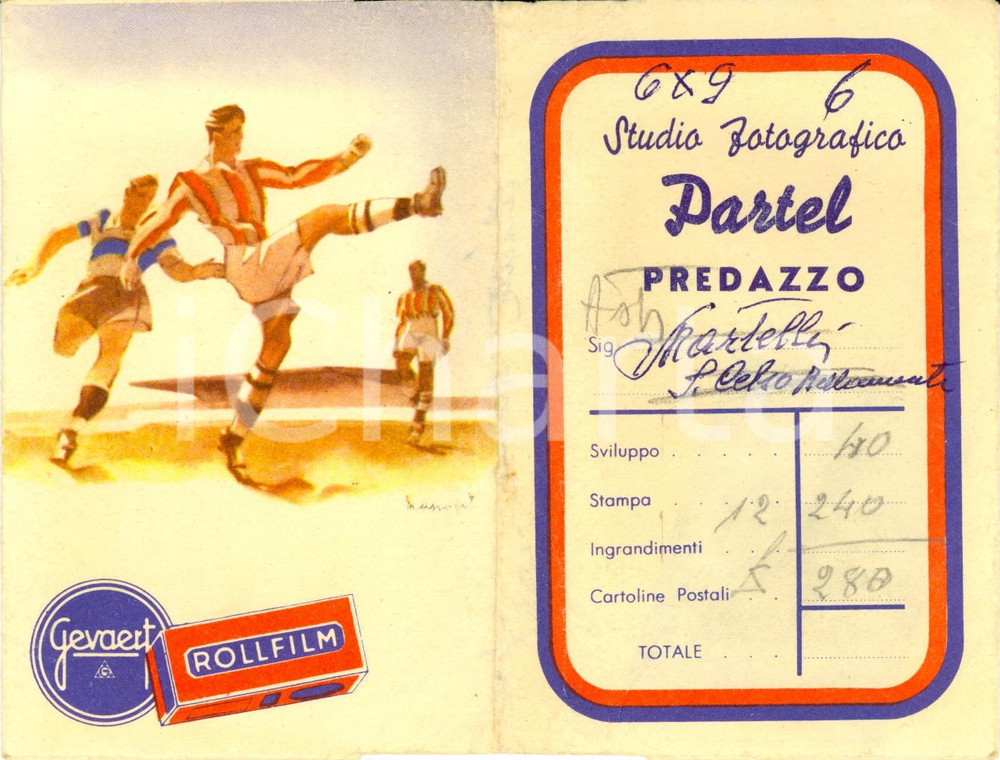 Gevaert
ROLLFILM
6x9 6
Studio Fotografico
Partel
PREDAZZO
Sig. Martelli
S. Celso
Sviluppo . . . . . 40
Stampa . . 12 240
Ingrandimenti . . .
Cartoline Postali . . 280
TOTALE . . . .
iCharta